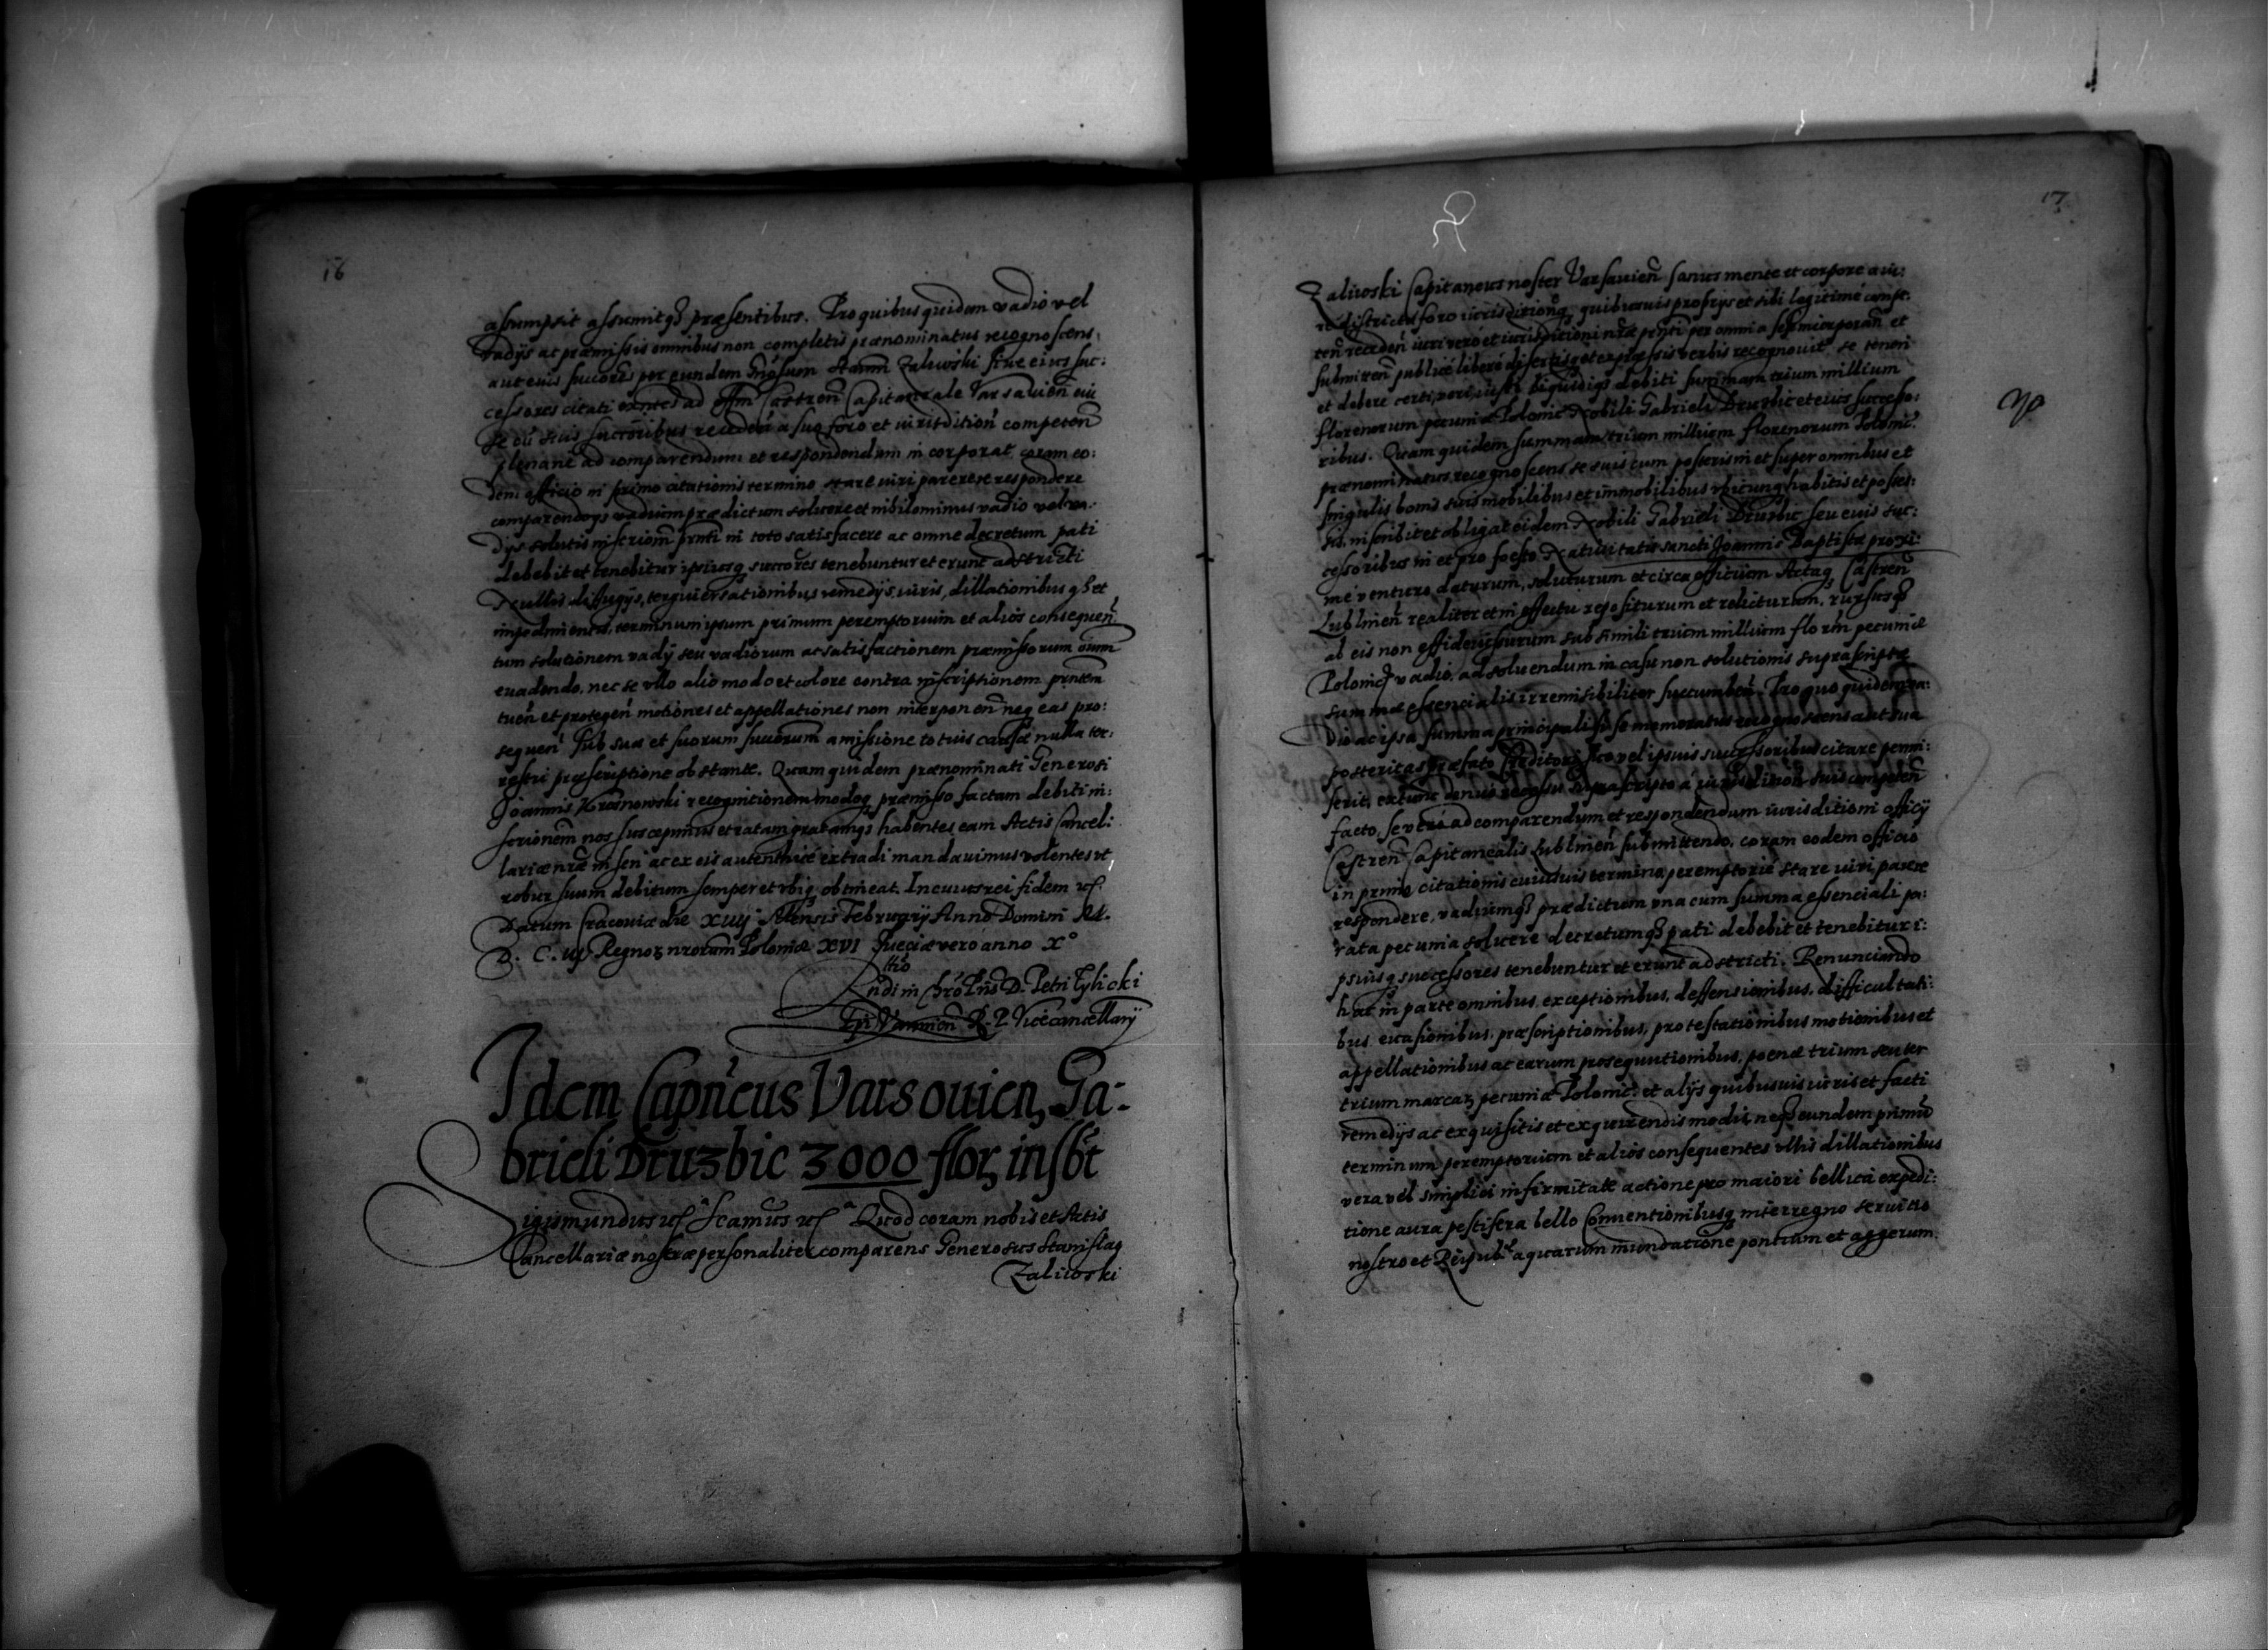 16
assumpsit assumitq3 præsentibus. Pro quibus quidem vadio vel
vadijs ac præmissis omnibus non completis prænominatus recognoscens,
aut euis succores per eundem Gnosum Stann Zaliwski siue eius suc:
cessores citati exntes ad offm Castren Capitaneale Varsauien cui
se cū suis succoribus receden a suo foro et iurisdition competen
plenariè ad comparendum et respondendum incorporat, coram eo:
dem officio in primo citationis termino stare viri parere et respondere
comparendoqs vadium prædictum soluere et nihilominus vadio vel va:
dijs solutis inscriom prnti in toto satisfacere ac omne decretum pati
debebit et tenebitur ipsiusq succores tenebuntur et erunt adstricti
Nullis diffugijs, terguiersationibus, remedijs iuris, dillationibus q3 et
impedimentis, terminum ipsum primum peremptorium et alios consequen
tum solutionem vadij seu vadiorum ac satisfactionem præmissorum oium
euadendo, nec se vllo alio modo et colore contra inscriptionem prntem
tuen et protegen motiones et appellationes non interponen neq eas pro:
sequen sub sua et suorum succorum amissione totius causæ nulla ter:
restri præscriptione obstante. Quam quidem prænominati Generosi
Joannis Krasnowski recognitionem modoq præmisso factam debiti in:
scrionem nos suscepimus et ratam gratamq3 habentes eam Actis Cancel:
lariæ nræ inseri ac ex eis autenthicè extradi mandauimus volentes vt
robur suum debitum semper et vbiq obtineat. In cuius rei fidem etc
Datum Cracouiæ die XIIIj Mensis February Anno Domini M.
D. C. iij Regnor nrorum Poloniæ XVI Sueciæ vero anno X°
Rndi in Chro Pris D. Petri Tylicki
Epi Varmien R. P. Vicecancellarij
Idem Capneus Varsouien, Ga-
brieli Druzbic 3000 flor, insbt
Sigismundus etc Scamus etc Quod coram nobis et Actis
Cancellariæ nostræ personaliter comparens Generosus Stanislaq
Zaliwski
17
Zaliwski Capitaneus noster Varsauien sanus mente et corpore a iu:
re districtu foro iurisditioneq quibusuis proprijs et sibi legitimè compe:
ten receden iuri verò et iurisditioni nræ prnti per omnia se incorporan et
submitten publicè liberè disertisq et expressis verbis recognouit, se teneri
et debere certi, veri, iusti liquidiq3 debiti summam trium millium
florenorum pecuniæ Polonic Nobili Gabrieli Druzbic et eius successo:
ribus. Quam quidem summam trium millium florenorum Polonic
prænominatus recognoscens se suis cum posteris in et super omnibus et
singulis bonis suis mobilibus et immobilibus vbicunq habitis et posses:
sis, inscribit et obligat eidem Nobili Gabrieli Druzbic seu euis suc:
cessoribus in et pro foesto Natiuitatis sancti Joannis Baptistæ proxi:
mè venturo daturum, soluturum et circa officium Actaq Castren
Lublinen realiter et in effectu repositurum et relicturum, rursusq3
ab eis non effideiussurum sub simili trium millium florin pecuniæ
Polonic vadio, ad soluendum in casu non solutionis suprascriptæ
summæ essencialis irremisibiliter succumben. Pro quo quidem va:
dio ac ipsa summa principali si se memoratus recognoscens aut sua
posteritas præfato Creditori suo vel ipsius successoribus citare permi:
serit, extunc tenus recessu suprascripto à iurisdition suis competen
facto, se verò ad comparendum et respondendum iurisditioni officij
Castren Capitanealis Lublinen submittendo, coram eodem officio
in primo citationis cuiusuis termino peremptoriè stare viri, parere
respondere, vadiumq3 prædictum vna cum summa essenciali pa:
rata pecunia soluere decretumq3 pati debebit et tenebitur i:
psiusq successores tenebuntur et erunt adstricti. Renunciando
hac in parte omnibus exceptionibus, deffensionibus, difficultati:
bus, euasionibus, præscriptionibus, protestationibus motionibus et
appellationibus ac earum prosequutionibus, poenæ trium seu ter
trium marcar pecuniæ Polonic: et alijs quibusuis iuris et facti
remedijs ac exquisitis et exquirendis modis, neq3 eundem primū
terminum peremptorium et alios consequentes vllis dillationibus
vera vel simplici infirmitate actione pro maiori bellica expedi:
tione aura pestifera bello Conuentionibusq interregno seruitio
nostro et Reipub: aquarum inundatione pontium et aggerum